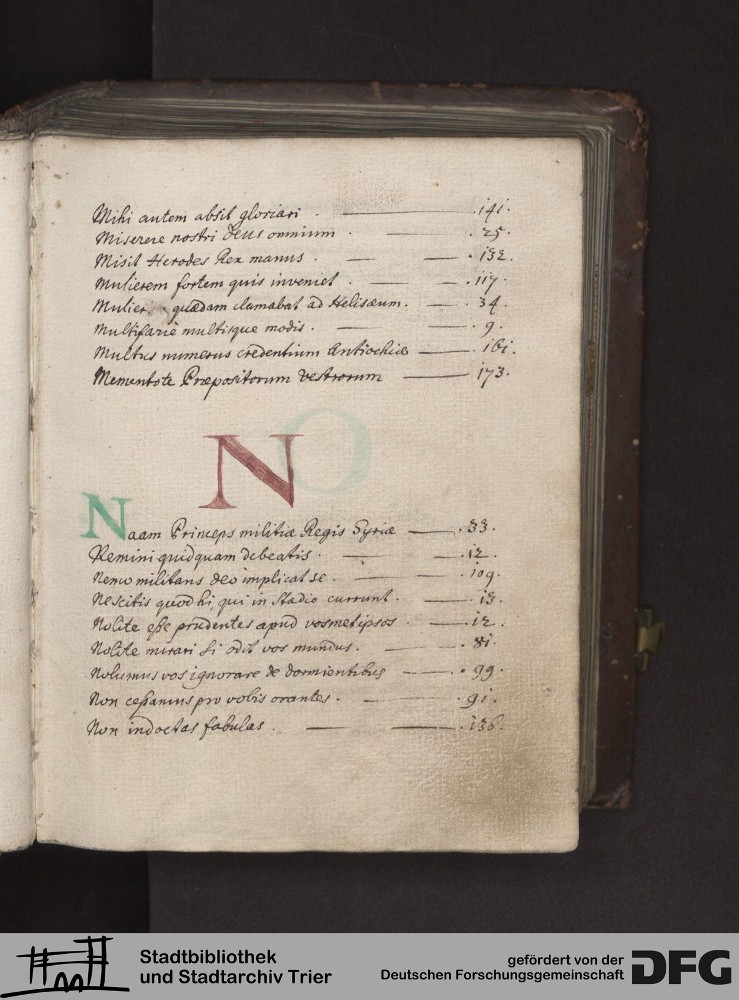 Mihi autem absit gloriari . — .141.
Miserere nostri Deus omnium . — . 25.
Misit Herodes Rex manus . — — . 132.
Mulierem fortem quis inveniet . — — . 117.
Mulier quædam clamabat ad Helisæum. — . 34.
Multifariè multisque modis . — — . 9.
Multus numerus credentium Antiochiæ — . 161.
Mementote Præpositorum vestrorum — . 173.
N
Naam Princeps militiæ Regis Syriæ — . 33.
Nemini quidquam debeatis . — — . 12.
Nemo militans deo implicat se . — — . 109.
Nescitis quod hi, qui in Stadio currunt . — . 13.
Nolite esse prudentes apud vosmetipsos . — . 12.
Nolite mirari si odit vos mundus . — — . 81.
Nolumus vos ignorare de dormientibus — . 99.
Non cessamus pro vobis orantes . — — . 91.
Non indoctas fabulas . — — . 136.
Stadtbibliothek
und Stadtarchiv Trier
gefördert von der
Deutschen Forschungsgemeinschaft DFG